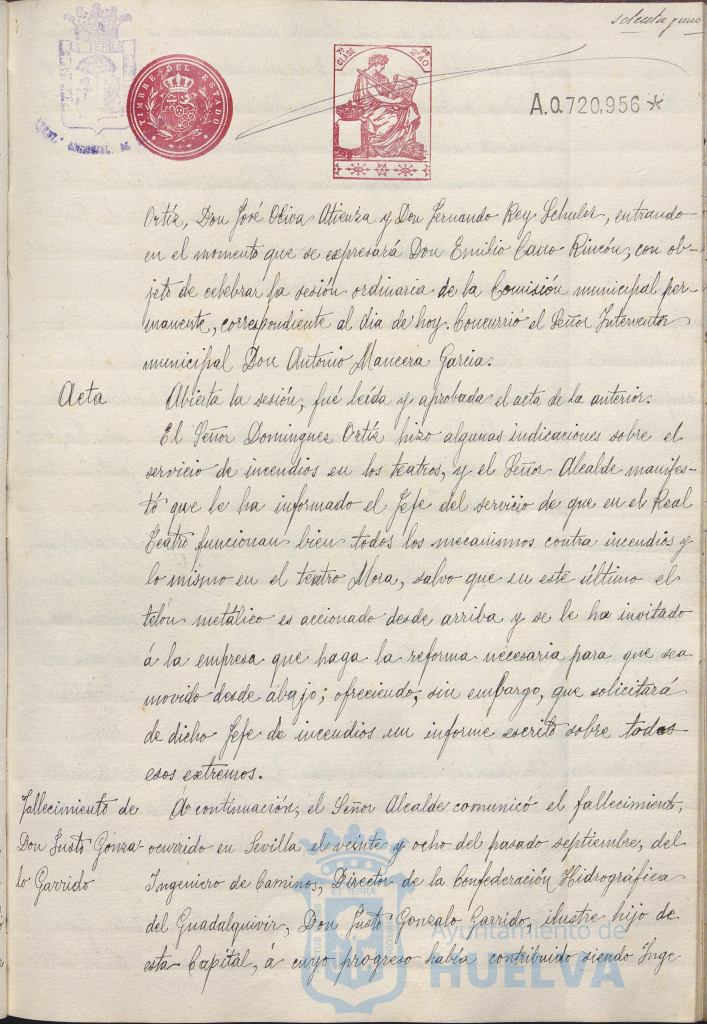 setenta y uno
TIMBRE DEL ESTADO
7ª CLASE
2'40
A.0.720,956 *
Ortiz, Don José Oliva Atienza y Don Fernando Rey Schulor, entrando
en el momento que se expresará Don Emilio Cano Rincón, con ob-
jeto de celebrar la sesión ordinaria de la Comisión municipal per-
manente, correspondiente al dia de hoy. Concurrió el Señor Interventor
municipal Don Antonio Mancera Garcia.
Acta
Abierta la sesión, fué leída y aprobada el acta de la anterior.
El Señor Dominguez Ortiz hizo algunas indicaciones sobre el
servicio de incendios en los teatros, y el Señor Alcalde manifes-
tó que le ha informado el Jefe del servicio de que en el Real
Teatro funcionan bien todos los mecanismos contra incendios y
lo mismo en el teatro Mora, salvo que en este último el
telón metálico es accionado desde arriba y se le ha invitado
á la empresa que haga la reforma necesaria para que sea
movido desde abajo; ofreciendo, sin embargo, que solicitará
de dicho Jefe de incendios un informe escrito sobre todos
esos extremos.
Fallecimiento de
Don Justo Gonza-
lo Garrido
A continuación, el Señor Alcalde comunicó el fallecimiento,
ocurrido en Sevilla el veinte y ocho del pasado septiembre, del
Ingeniero de Caminos, Director de la Confederación Hidrográfica
del Guadalquivir, Don Justo Gonzalo Garrido, ilustre hijo de
esta Capital, á cuyo progreso había contribuido siendo Inge
Ayuntamiento de
HUELVA